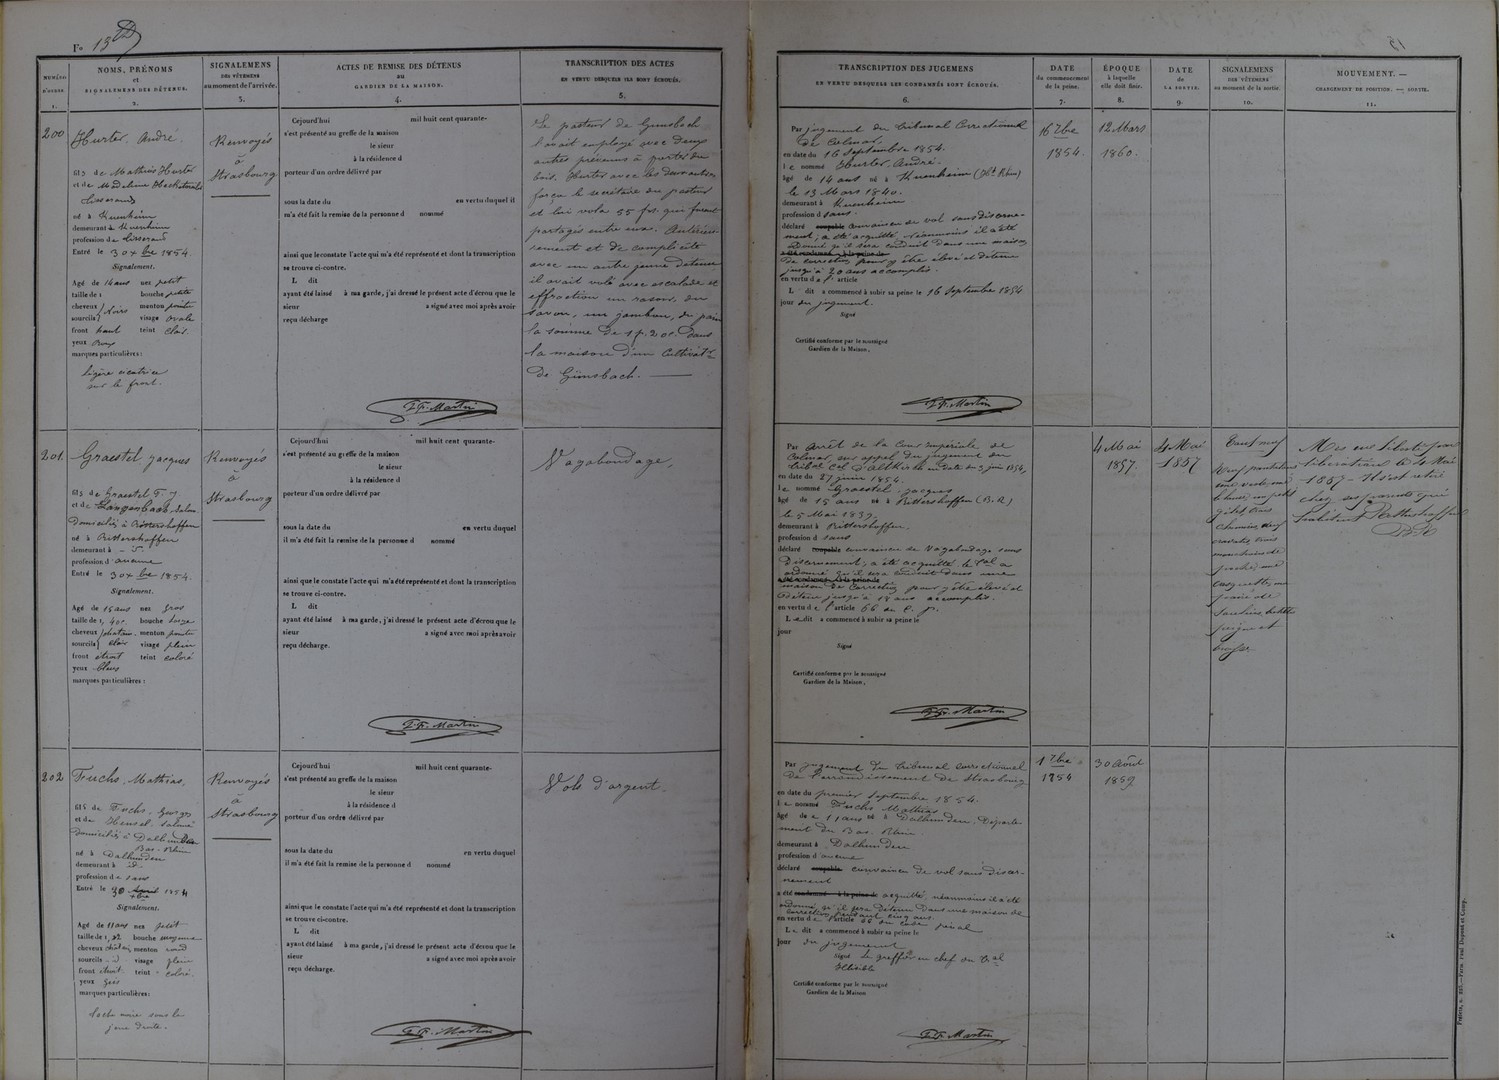 Fo 13
NUMÉRO D'ORDRE 1.
NOMS, PRÉNOMS
et
SIGNALEMENS DES DÉTENUS.
2.
SIGNALEMENS
DES VÊTEMENS
au moment de l'arrivée.
3.
ACTES DE REMISE DES DÉTENUS
au
GARDIEN DE LA MAISON.
4.
TRANSCRIPTION DES ACTES
EN VERTU DESQUELS ILS SONT ÉCROUÉS.
5.
TRANSCRIPTION DES JUGEMENS
EN VERTU DESQUELS LES CONDAMNÉS SONT ÉCROUÉS.
6.
DATE
du commencement
de la peine.
7.
ÉPOQUE
à laquelle
elle doit finir.
8.
DATE
de
LA SORTIE.
9.
SIGNALEMENS
DES VÊTEMENS
au moment de la sortie.
10.
MOUVEMENT. —
CHANGEMENT DE POSITION. — SORTIE.
11.
200
Hurter, André
fils de Mathias Hurter
et de Madeleine
tisserand
né à Kuenheim
demeurant à Kuenheim
profession de tisserand
Entré le 30 xbre 1854.
Signalement.
Agé de 14 ans nez petit
taille de 1 bouche petite
cheveux noirs menton pointu
sourcils visage ovale
front haut teint clair
yeux
marques particulières :
légère cicatrice
sur le front.
Renvoyés
à
Strasbourg
Cejourd'hui mil huit cent quarante-
s'est présenté au greffe de la maison
le sieur
à la résidence d
porteur d'un ordre délivré par
sous la date du en vertu duquel il
m'a été fait la remise de la personne d nommé
ainsi que le constate l'acte qui m'a été représenté et dont la transcription
se trouve ci-contre.
L dit
ayant été laissé à ma garde, j'ai dressé le présent acte d'écrou que le
sieur a signé avec moi après avoir
reçu décharge
F. F. Martin
Le pasteur de Gunsbach
l'avait employé avec deux
autres prévenus à porter du
bois. Hurter avec les deux autres
força le secrétaire du pasteur
et lui vola 55 frs. qui furent
partagés entre eux. Antérieu-
rement et de complicité
avec un autre jeune détenu
il avait volé avec escalade et
effraction un rasoir, du
savon, un jambon, du pain
la somme de 1 f. 20 c. dans
la maison d'un cultivatr
de Gunsbach.
Par jugement du tribunal Correctionnel
de Colmar,
en date du 16 Septembre 1854.
le nommé Hurter, André.
âgé de 14 ans né à Kuenheim (Ht. Rhin)
le 13 Mars 1840.
demeurant à Kuenheim
profession d sans.
déclaré coupable convaincu de vol sans discerne-
ment, a été acquitté, néanmoins il a été
ordonné qu'il sera conduit dans une maison
a été condamné à la peine de
de correction pour y être élevé et détenu
jusqu'à 20 ans accomplis.
en vertu de l' article
L dit a commencé à subir sa peine le 16 Septembre 1854
jour du jugement.
Signé
Certifié conforme par le soussigné
Gardien de la Maison,
F. F. Martin
16 7bre
1854.
12 Mars
1860.
201.
Graestel Jacques
fils de Graestel F. J
et de
domiciliés à Rittershoffen
né à Rittershoffen
demeurant à
profession d'aucune
Entré le 30 xbre 1854.
Signalement.
Agé de 15 ans nez gros
taille de 1, 40c. bouche large
cheveux chatain. menton pointu
sourcils clair visage plein
front étroit teint coloré
yeux bleus
marques particulières :
Renvoyés
à
Strasbourg
Cejourd'hui mil huit cent quarante-
s'est présenté au greffe de la maison
le sieur
à la résidence d
porteur d'un ordre délivré par
sous la date du en vertu duquel
il m'a été fait la remise de la personne d nommé
ainsi que le constate l'acte qui m'a été représenté et dont la transcription
se trouve ci-contre.
L dit
ayant été laissé à ma garde, j'ai dressé le présent acte d'écrou que le
sieur a signé avec moi après avoir
reçu décharge.
F. F. Martin
Vagabondage,
Par arrêt de la Cour impériale de
Colmar, sur appel du jugement du
tribal Cel d'Altkirch en date du 3 juin 1854,
en date du 27 juin 1854.
le nommé Graestel, Jacques
âgé de 15 ans né à Rittershoffen (B. R.)
le 5 Mai 1839.
demeurant à Rittershoffen.
profession d sans
déclaré coupable convaincu de Vagabondage sans
discernement, a été acquitté, le tal a
ordonné qu'il sera conduit dans une
a été condamné à la peine de
maison de correction pour y être élevé et
détenu jusqu'à 18 ans accomplis.
en vertu de l'article 66 du C. p.
L edit a commencé à subir sa peine le
jour
Signé
Certifié conforme par le soussigné
Gardien de la Maison,
F. F. Martin
4 Mai
1857.
4 Mai
1857
pantalon
gilet, trois
chemises
cravates, trois
mouchoirs de
poche, une
casquette, une
paire de
peigne et
brosse
Mis en liberté pour
libération le 4 Mai
1857 - Il s'est retiré
chez ses parents qui
habitent Rittershoffen
B R
202
Fuchs. Mathias.
fils de Fuchs. Georges
et de Hensel. Salomé
domiciliés à Dalhunden
Bas-Rhin
né à Dalhunden
demeurant à id.
profession de sans
Entré le 30 April xbre 1854
Signalement.
Agé de 11 ans nez petit
taille de 1, 22 bouche moyenne
cheveux châtain menton rond
sourcils id visage plein
front étroit teint coloré.
yeux gris
marques particulières:
Tache noire sous la
joue droite.
Renvoyés
à
Strasbourg
Cejourd'hui mil huit cent quarante-
s'est présenté au greffe de la maison
le sieur
à la résidence d
porteur d'un ordre délivré par
sous la date du en vertu duquel
il m'a été fait la remise de la personne d nommé
ainsi que le constate l'acte qui m'a été représenté et dont la transcription
se trouve ci-contre.
L dit
ayant été laissé à ma garde, j'ai dressé le présent acte d'écrou que le
sieur a signé avec moi après avoir
reçu décharge.
F. F. Martin
Vols d'argent.
Par jugement du tribunal correctionnel
de l'arrondissement de Strasbourg
en date du premier Septembre 1854.
le nommé Fuchs Mathias
âgé de 11 ans né à Dalhunden. Départe-
ment du Bas. Rhin.
demeurant à Dalhunden
profession d'aucune
déclaré coupable convaincu de vol sans discer-
nement
a été condamné à la peine de acquitté, néanmoins il a été
ordonné, qu'il sera détenu dans une maison de
correction pendant cinq ans.
en vertu de l'article 66 du code pénal
L e. dit a commencé à subir sa peine le
jour du jugement
Signé Le greffier en chef du tal
Illisible
Certifié conforme par le soussigné
Gardien de la Maison
F. F. Martin
1 7bre
1854
30 Avril
1859